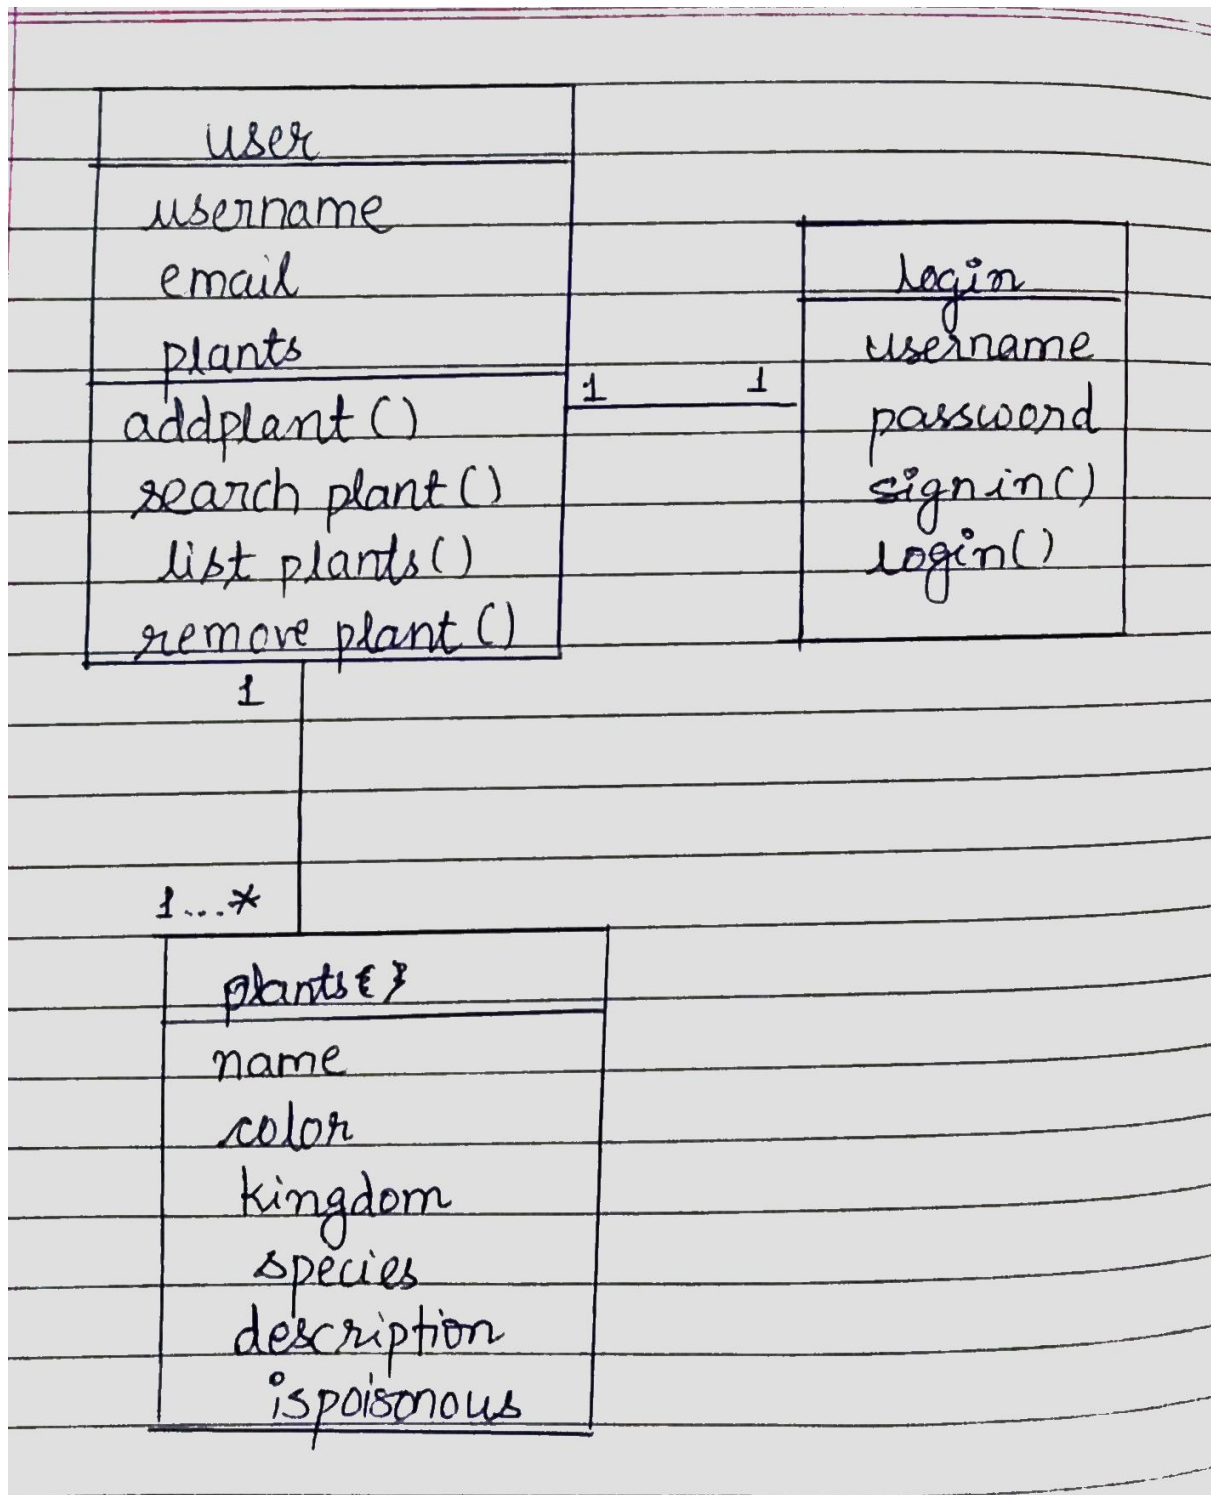 user
username
email
plants
addplant()
search plant()
list plants()
remove plant()
1
1
login
username
password
signin()
login()
1
1...*
plants{}
name
color
kingdom
species
description
ispoisonous